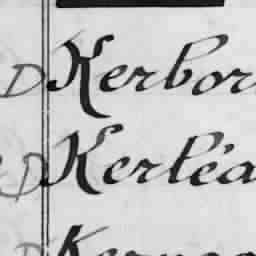 D Kerbor
D Kerléa